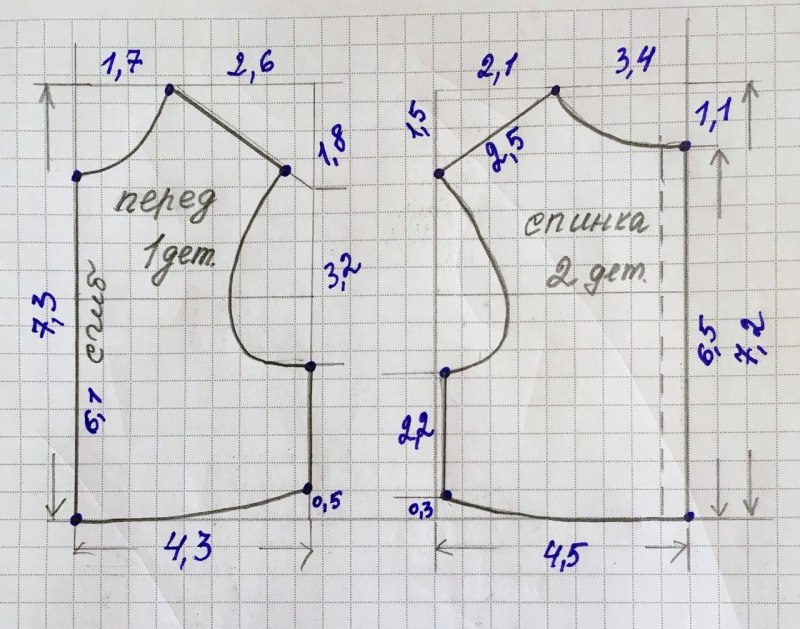 1,7
2,6
1,8
перед
1 дет.
3,2
7,3
сгиб
6,1
0,5
4,3
2,1
3,4
1,5
2,5
1,1
спинка
2 дет.
6,5
7,2
2,2
0,3
4,5